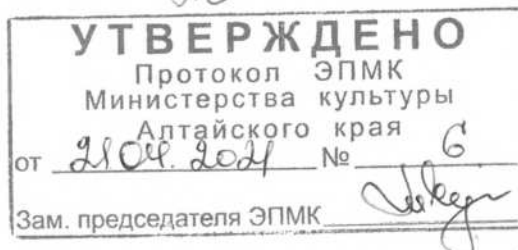 УТВЕРЖДЕНО
Протокол ЭПМК
Министерства культуры
Алтайского края
от 21.04.2021 № 6
Зам. председателя ЭПМК